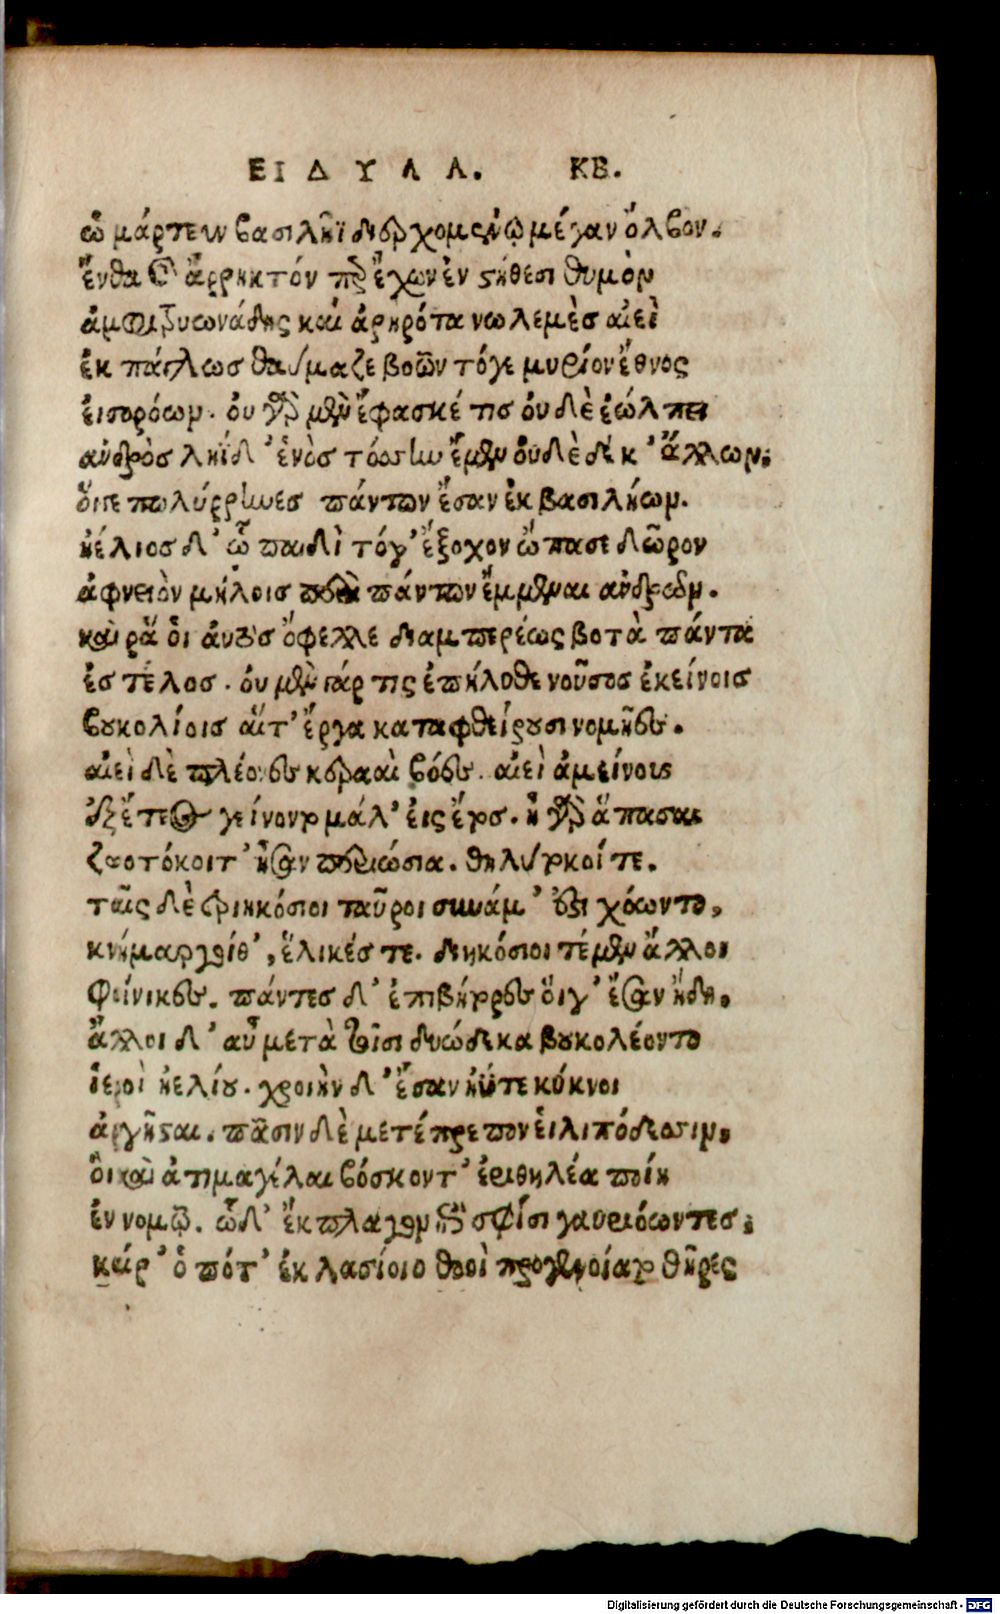 ΕΙΔΥΛΛ. ΚΒ.
ὡ μάρτευν βασιλῆϊ διερχομένῳ μέγαν ὄλβον.
ἔνθα καὶ ἄρρηκτόν περ ἔχων ἐν στήθεσι θυμὸν
ἀμφιτρυωνάδης καὶ ἀρηρότα νωλεμὲσ αἰεὶ
ἐκ πάγλωσ θαύμαζε βοῶν τόγε μυρίον ἔθνος
εἰσορόων. οὐ γὰρ μὲν ἔφασκέ τισ οὐ δὲ ἐώλπει
ἀνδρὸσ ληΐδ' ἑνὸσ τόσσην ἔμεν οὐδὲ δέκ' ἄλλων,
ὅιτε πολύρρηνεσ πάντων ἔσαν ἐκ βασιλήων.
ἠέλιοσ δ' ᾧ παιδὶ τόγ' ἔξοχον ὤπασε δῶρον
ἀφνειὸν μήλοισ περὶ πάντων ἔμμεναι ἀνδρῶν.
καὶ ῥά οἱ αὐτὸσ ὄφελλε διαμπερέως βοτὰ πάντα
ἐσ τέλοσ. οὐ μὲν γάρ τις ἐπήλυθε νοῦσος ἐκείνοισ
βουκολίοισ αἵτ' ἔργα καταφθείρουσι νομῆες.
αἰεὶ δὲ πλέονες κερααὶ βόες. αἰεὶ ἀμείνους
ἐξ ἔτεος γείνοντο μάλ' εἰς ἔτος. ἦ γὰρ ἅπασαι
ζωοτόκοι τ' ἦσαν περιώσια. θηλυτόκοί τε.
ταῖς δὲ τριηκόσιοι ταῦροι συνάμ' ἐστιχόωντο,
κνήμαργοίθ', ἕλικές τε. διηκόσιοι τέ μὲν ἄλλοι
φοίνικες. πάντεσ δ' ἐπιβήτορες ὅιγ' ἔσαν ἤδη.
ἄλλοι δ' αὖ μετὰ τοῖσι δυώδεκα βουκολέοντο
ἱεροὶ ἠελίου. χροιὴν δ' ἔσαν ἠΰτε κύκνοι
ἀργησταὶ. πᾶσιν δὲ μετέπρεπον εἰλιπόδεσσιν,
ὅι καὶ ἀτιμαγέλαι βόσκοντ' ἐριθηλέα ποίη
ἐν νομῷ. ὧδ' ἔκπλαγον ἐπὶ σφίσι γαυριόωντεσ.
καί ρ' ὁπότ' ἐκ λασίοιο θοοὶ προγενοίατο θῆρες
Digitalisierung gefördert durch die Deutsche Forschungsgemeinschaft - DFG